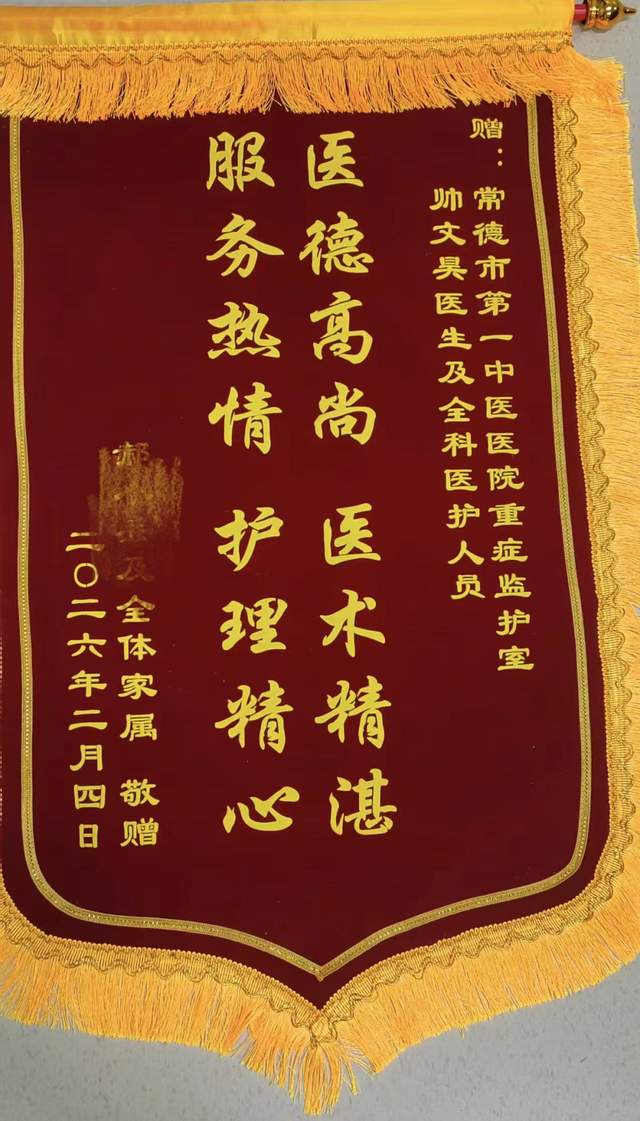 赠：常德市第一中医医院重症监护室
帅文昊医生及全科医护人员
医德高尚 医术精湛
服务热情 护理精心
及全体家属 敬赠
二〇二六年二月四日